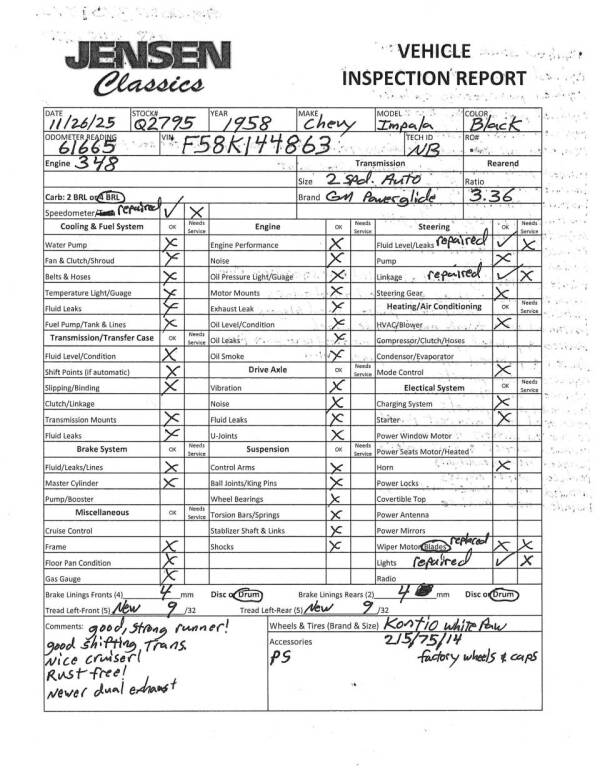 JENSEN
Classics
VEHICLE
INSPECTION REPORT
DATE STOCK# YEAR MAKE MODEL COLOR
11/26/25 Q2795 1958 Chevy Impala Black
ODOMETER READING VIN TECH ID RO#
61665 F58K144863 NB
Engine 348 Transmission Rearend
Size 2 Spd. Auto Ratio
Carb: 2 BRL or 4 BRL Brand GM Powerglide 3.36
Speedometer/ repaired ✓ X
Cooling & Fuel System OK Needs Service Engine OK Needs Service Steering OK Needs Service
Water Pump X Engine Performance X Fluid Level/Leaks repaired ✓ X
Fan & Clutch/Shroud X Noise X Pump X
Belts & Hoses X Oil Pressure Light/Guage X Linkage repaired ✓ X
Temperature Light/Guage X Motor Mounts X Steering Gear X
Fluid Leaks X Exhaust Leak X Heating/Air Conditioning OK Needs Service
Fuel Pump/Tank & Lines X Oil Level/Condition X HVAC/Blower X
Transmission/Transfer Case OK Needs Service Oil Leaks X Compressor/Clutch/Hoses
Fluid Level/Condition X Oil Smoke X Condensor/Evaporator
Shift Points (if automatic) X Drive Axle OK Needs Service Mode Control X
Slipping/Binding X Vibration X Electrical System OK Needs Service
Clutch/Linkage Noise X Charging System X
Transmission Mounts X Fluid Leaks X Starter X
Fluid Leaks X U-Joints X Power Window Motor
Brake System OK Needs Service Suspension OK Needs Service Power Seats Motor/Heated
Fluid/Leaks/Lines X Control Arms X Horn X
Master Cylinder X Ball Joints/King Pins X Power Locks
Pump/Booster Wheel Bearings X Covertible Top
Miscellaneous OK Needs Service Torsion Bars/Springs X Power Antenna
Cruise Control Stablizer Shaft & Links X Power Mirrors
Frame X Shocks X Wiper Motor/Blades replaced X X
Floor Pan Condition X Lights repaired ✓ X
Gas Gauge X Radio
Brake Linings Fronts (4) 4 mm Disc or Drum Brake Linings Rears (2) 4 mm Disc or Drum
Tread Left-Front (5) New 9 /32 Tread Left-Rear (5) New 9 /32
Comments: good, strong runner! Wheels & Tires (Brand & Size) Kontio White Paw
good shifting Trans. Accessories 215/75/14
Nice cruiser! PS factory wheels & caps
Rust free!
Newer dual exhaust